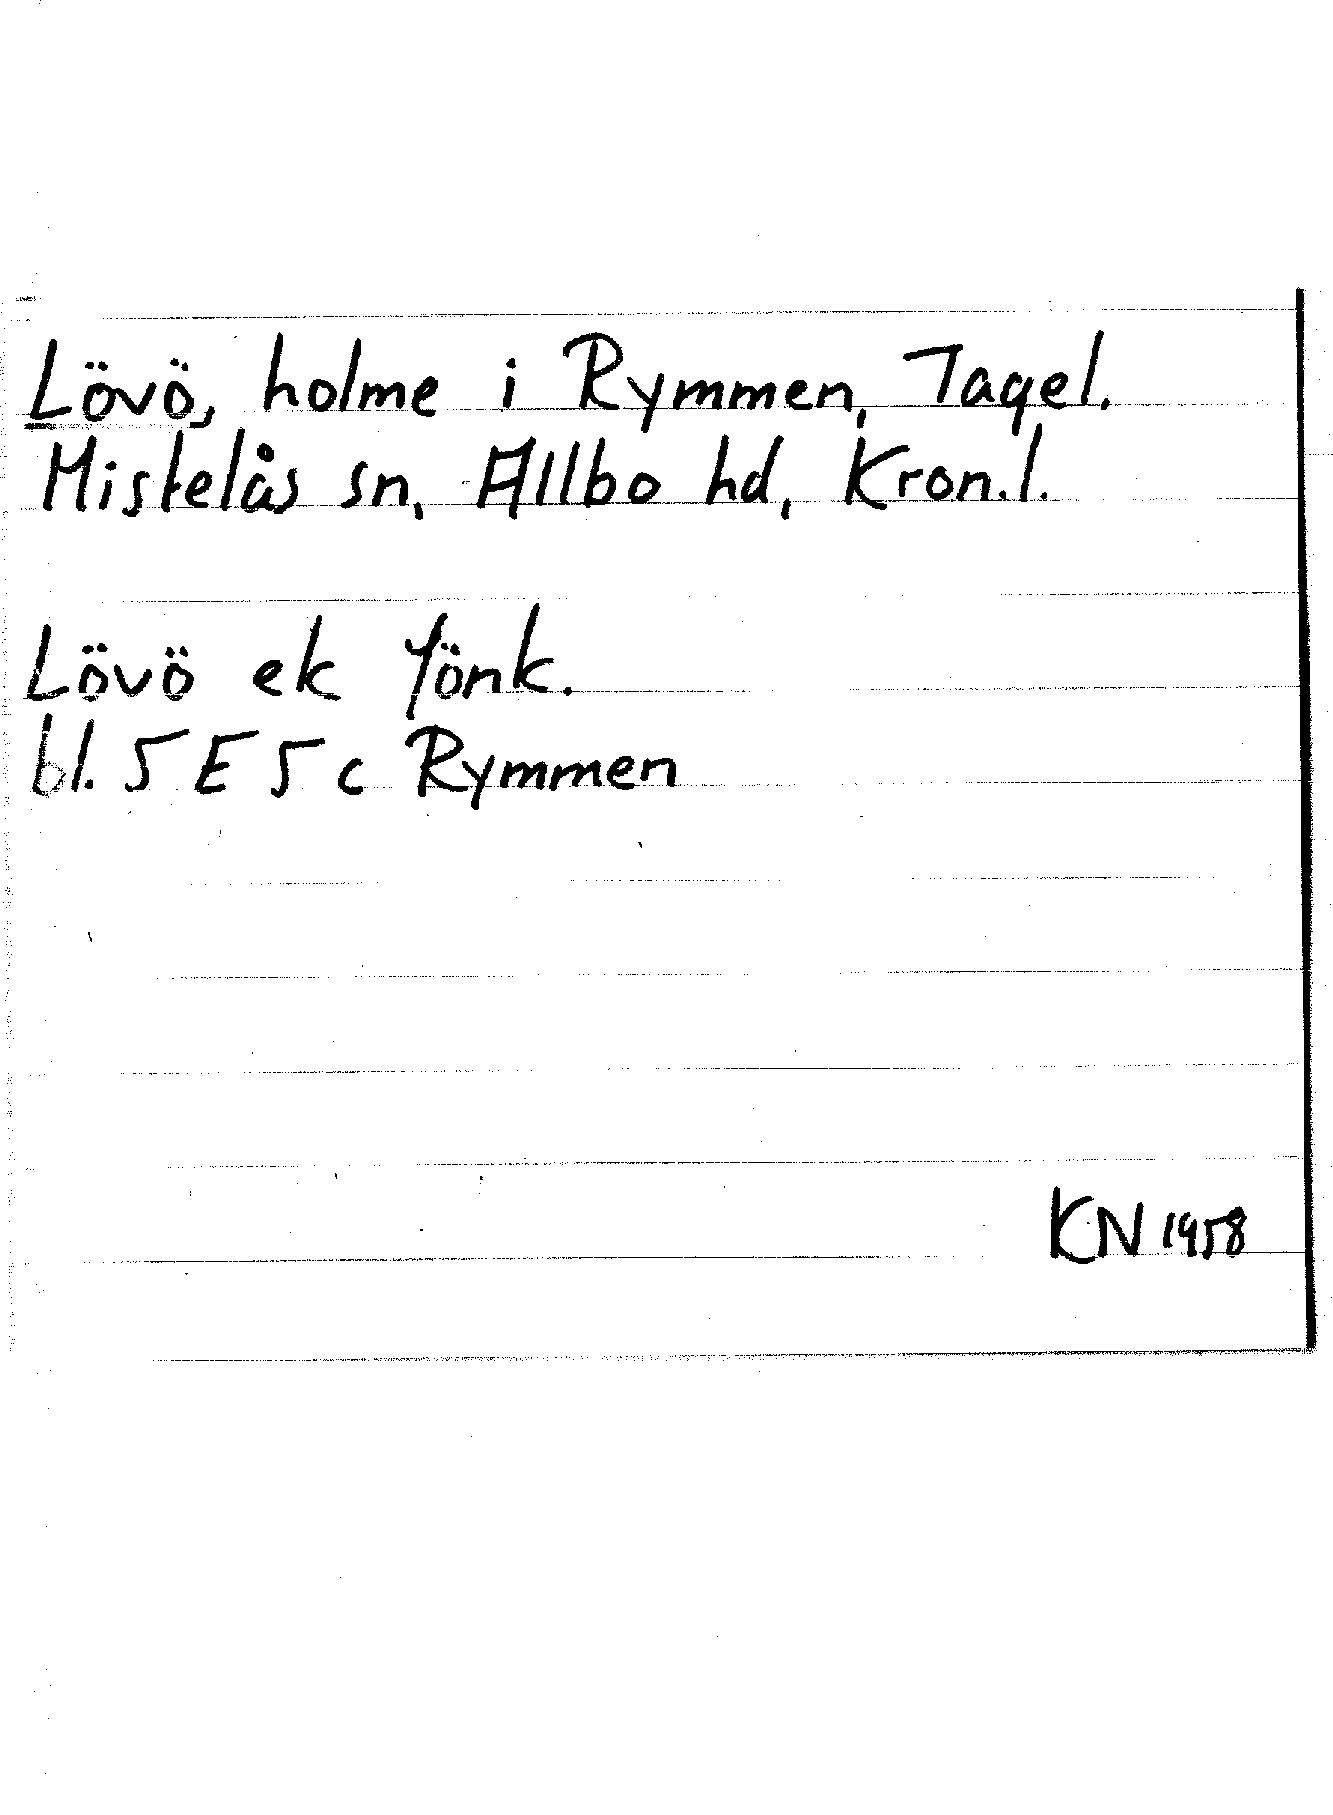 Lövö, holme i Rymmen, Tagel.
Mistelås sn, Allbo hd, Kron.l.
Lövö ek Jönk.
bl. 5 E 5 c Rymmen
KN 1958